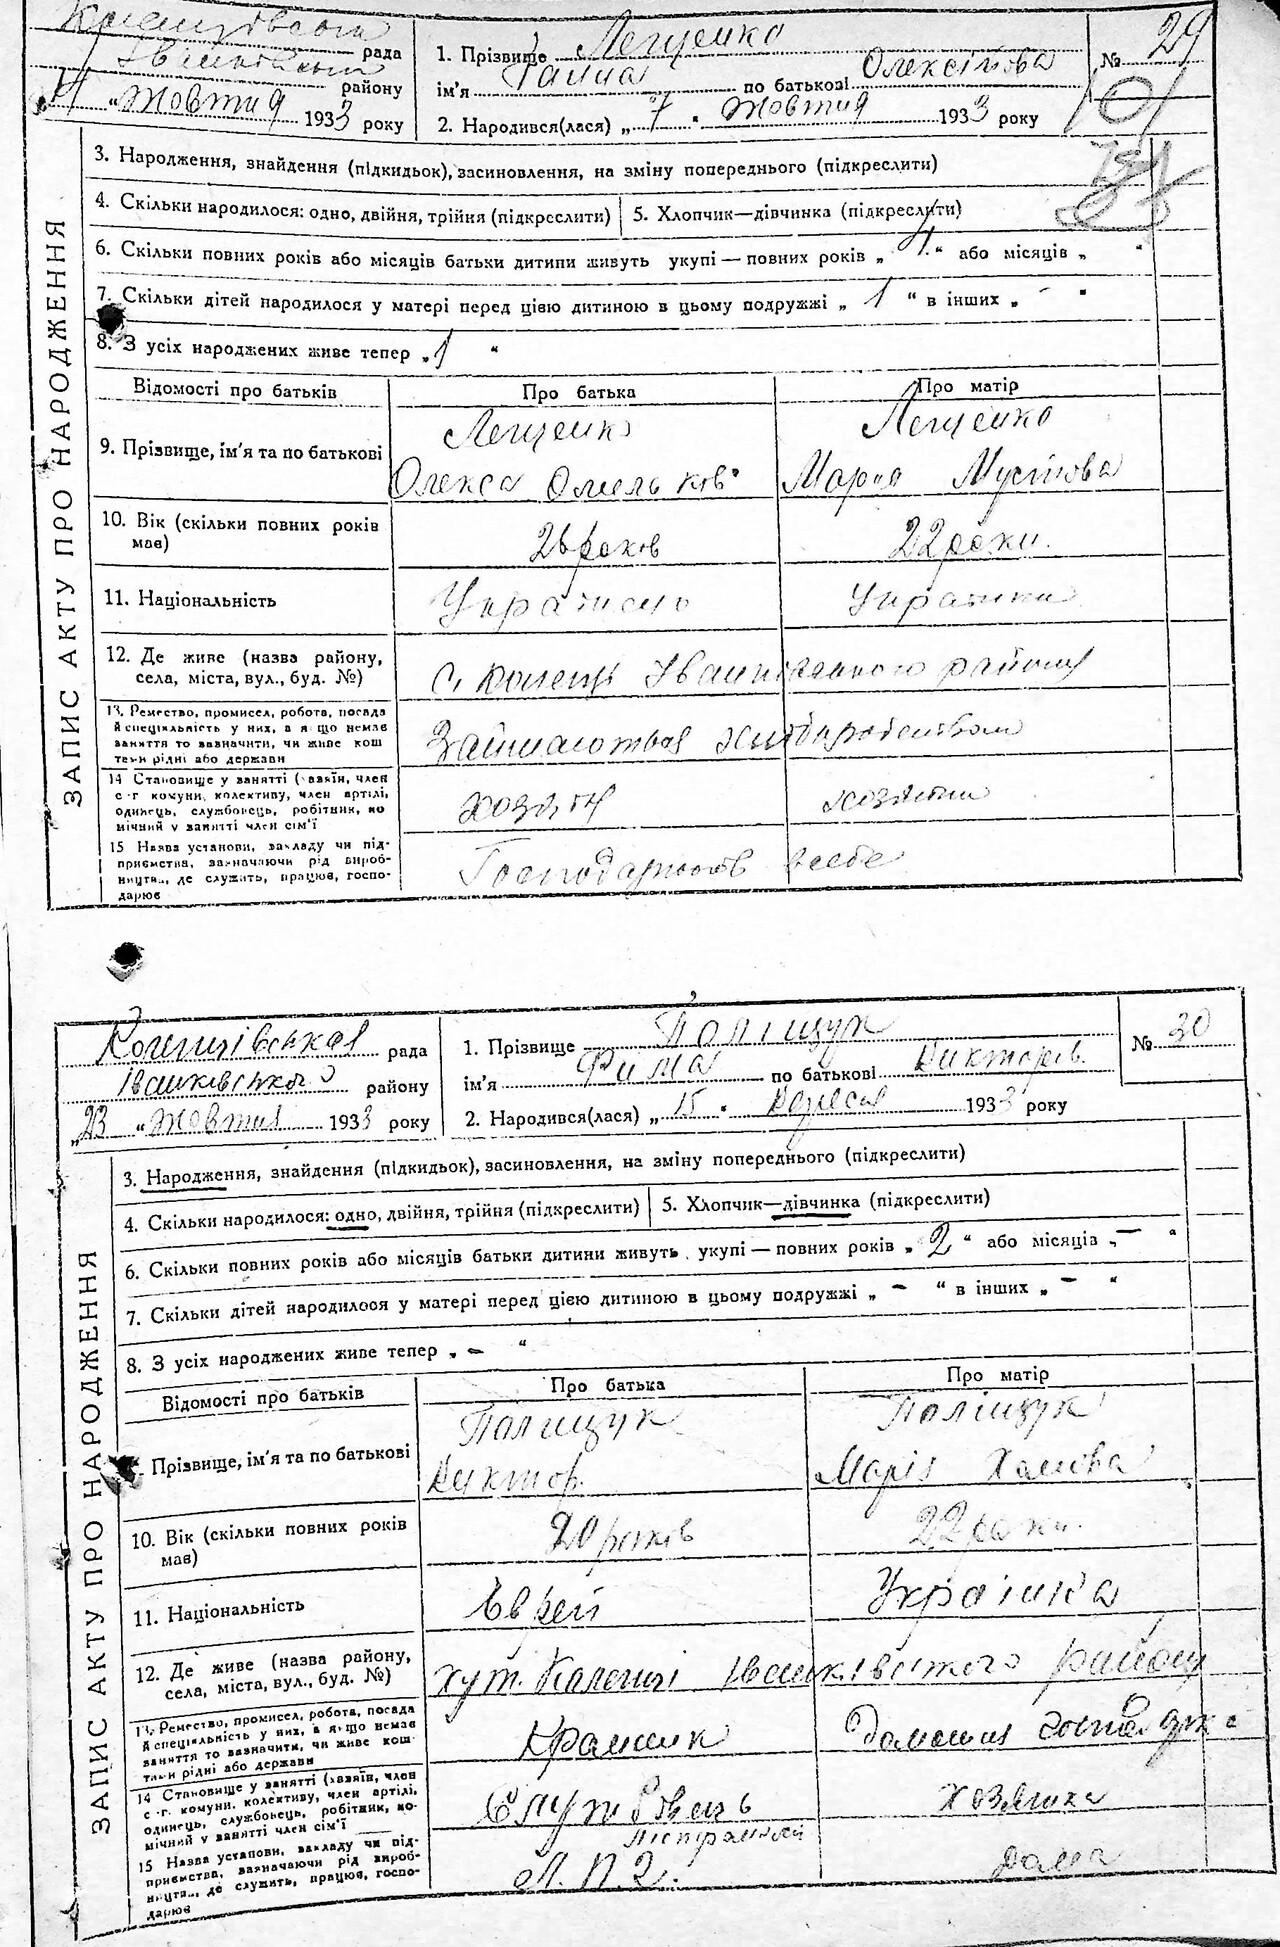 рада
району
„4 “ Жовтня 1933 року
1. Прізвище Лещенко
ім'я Ганна по батькові Олексійова
2. Народився(лася) „ 7 “ Жовтня 1933 року
№ 29
ЗАПИС АКТУ ПРО НАРОДЖЕННЯ
3. Народження, знайдення (підкидьок), засиновлення, на зміну попереднього (підкреслити)
4. Скільки народилося: одно, двійня, трійня (підкреслити) 5. Хлопчик—дівчинка (підкреслити)
6. Скільки повних років або місяців батьки дитини живуть укупі — повних років „ 4 “ або місяців „ “
7. Скільки дітей народилося у матері перед цією дитиною в цьому подружжі „ 1 “ в інших „ - “
8. З усіх народжених живе тепер „ 1 “
Відомості про батьків Про батька Про матір
9. Прізвище, ім'я та по батькові Лещенко Лещенко
Олекса Омельков. Мария
10. Вік (скільки повних років має) 26 роков 22 роки.
11. Національність
12. Де живе (назва району, села, міста, вул., буд. №) с. Коленці Іванківського району
13. Ремество, промисел, робота, посада й спеціяльність у них, а якщо немає заняття то зазначити, чи живе коштами рідні або держави Займаються хліборобством
14 Становище у занятті (хазяїн, член с.-г. комуни, колективу, член артілі, одинець, службовець, робітник, помічний у занятті член сім'ї хозяін хозяйка
15 Назва установи, закладу чи підприємства, зазначаючи рід виробництва, де служить, працює, господарює в себе
Коленцівська рада
Іванківського району
„23 “ Жовтня 1933 року
1. Прізвище Поліщук
ім'я Фима по батькові Викторів.
2. Народився(лася) „ 15 “ Вересня 1933 року
№ 30
ЗАПИС АКТУ ПРО НАРОДЖЕННЯ
3. Народження, знайдення (підкидьок), засиновлення, на зміну попереднього (підкреслити)
4. Скільки народилося: одно, двійня, трійня (підкреслити) 5. Хлопчик—дівчинка (підкреслити)
6. Скільки повних років або місяців батьки дитини живуть укупі — повних років „ 2 “ або місяців „ — “
7. Скільки дітей народилося у матері перед цією дитиною в цьому подружжі „ — “ в інших „ — “
8. З усіх народжених живе тепер „ — “
Відомості про батьків Про батька Про матір
Прізвище, ім'я та по батькові Полищук Поліщук
Виктор. Марія Хомова
10. Вік (скільки повних років має) 20 років 22 роки.
11. Національність Єврей Українка
12. Де живе (назва району, села, міста, вул., буд. №) хут. Коленці Іванківського району
13. Ремество, промисел, робота, посада й спеціяльність у них, а якщо немає заняття то зазначити, чи живе коштами рідні або держави Крамник
14 Становище у занятті (хазяїн, член с.-г. комуни, колективу, член артілі, одинець, службовець, робітник, помічний у занятті член сім'ї Службовець хозяйка
15 Назва установи, закладу чи підприємства, зазначаючи рід виробництва, де служить, працює, господарює Л.П.Г. дома